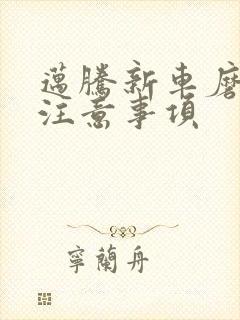 邁騰新車磨
注意事項
寧蘭舟